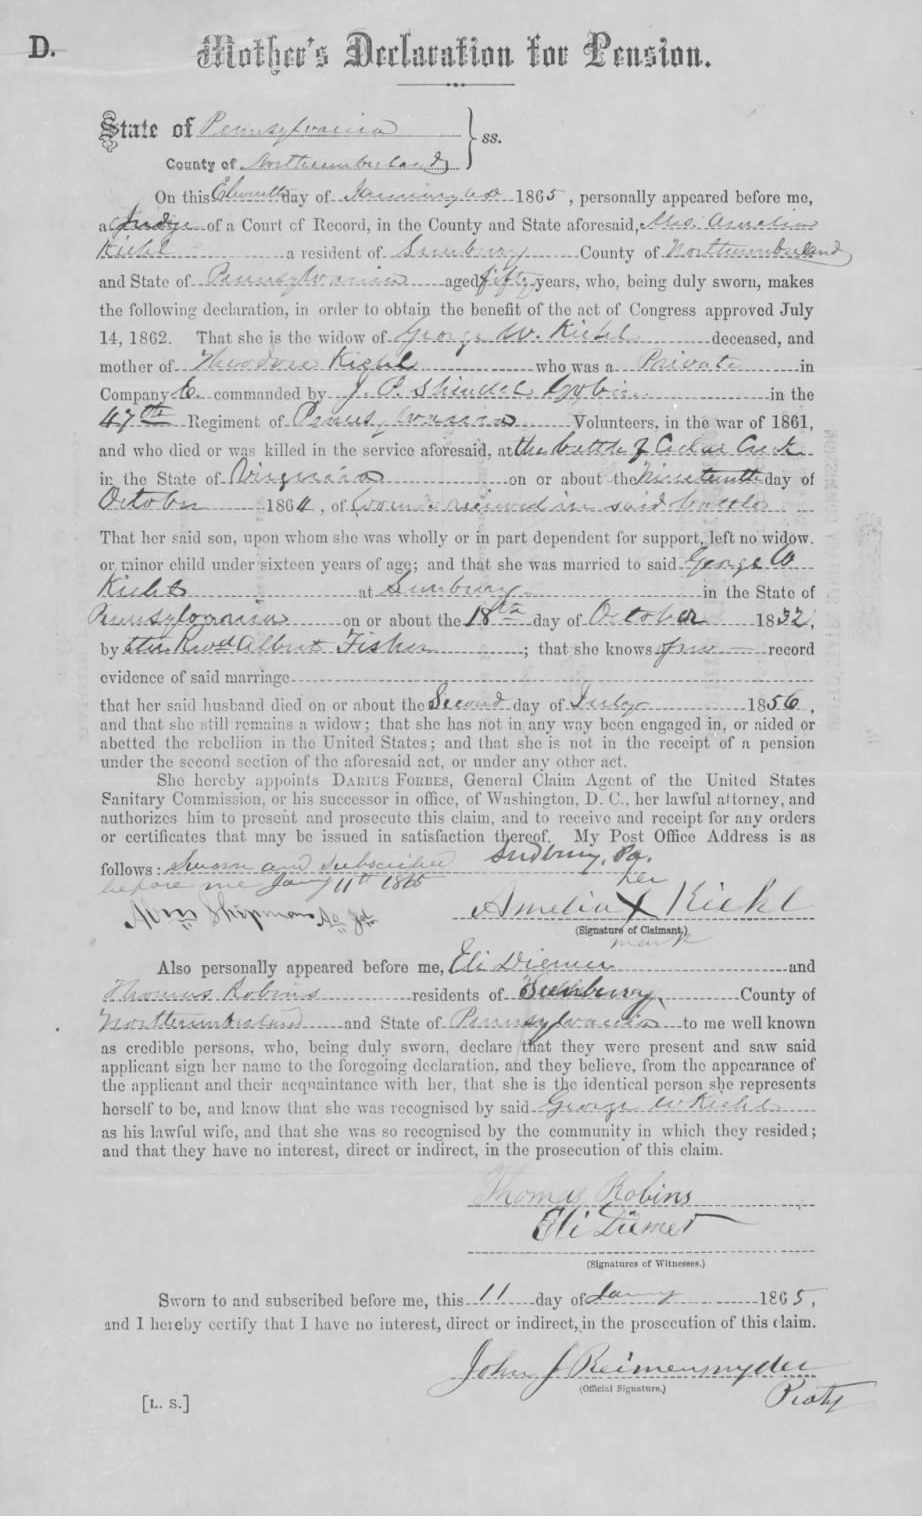 D.
Mother's Declaration for Pension.
State of Pennsylvania
ss.
County of Northumberland
On this Eleventh day of January AD 1865, personally appeared before me,
a Judge of a Court of Record, in the County and State aforesaid, Mrs. Amelia
Kiehl a resident of Sunbury County of Northumberland
and State of Pennsylvania aged fifty years, who, being duly sworn, makes
the following declaration, in order to obtain the benefit of the act of Congress approved July
14, 1862. That she is the widow of George W. Kiehl deceased, and
mother of Theodore Kiehl who was a Private in
Company C. commanded by J. P. Shindel Gobin in the
47th Regiment of Pennsylvania Volunteers, in the war of 1861,
and who died or was killed in the service aforesaid, at the battle of Cedar Creek
in the State of Virginia on or about the Nineteenth day of
October 1864, of wounds received in said battle
That her said son, upon whom she was wholly or in part dependent for support, left no widow.
or minor child under sixteen years of age; and that she was married to said George W
Kiehl at Sunbury in the State of
Pennsylvania on or about the 18th day of October 1832,
by the Revd Albert Fisher; that she knows of no record
evidence of said marriage
that her said husband died on or about the Second day of July 1856,
and that she still remains a widow; that she has not in any way been engaged in, or aided or
abetted the rebellion in the United States; and that she is not in the receipt of a pension
under the second section of the aforesaid act, or under any other act.
She hereby appoints DARIUS FORBES, General Claim Agent of the United States
Sanitary Commission, or his successor in office, of Washington, D. C., her lawful attorney, and
authorizes him to present and prosecute this claim, and to receive and receipt for any orders
or certificates that may be issued in satisfaction thereof. My Post Office Address is as
follows: Sunbury, Pa.
Sworn and Subscribed
before me Jany 11th 1865
her
Amelia X Kiehl
(Signature of Claimant.)
mark
Wm Shipman
Also personally appeared before me, Eli Diemer and
Thomas Robins residents of Sunbury, County of
Northumberland and State of Pennsylvania to me well known
as credible persons, who, being duly sworn, declare that they were present and saw said
applicant sign her name to the foregoing declaration, and they believe, from the appearance of
the applicant and their acquaintance with her, that she is the identical person she represents
herself to be, and know that she was recognised by said George W Kiehl
as his lawful wife, and that she was so recognised by the community in which they resided;
and that they have no interest, direct or indirect, in the prosecution of this claim.
Thomas Robins
Eli Diemer
(Signatures of Witnesses.)
Sworn to and subscribed before me, this 11 day of Jany 1865,
and I hereby certify that I have no interest, direct or indirect, in the prosecution of this claim.
John J Reimensnyder
(Official Signature.)
Proty
[L. S.]